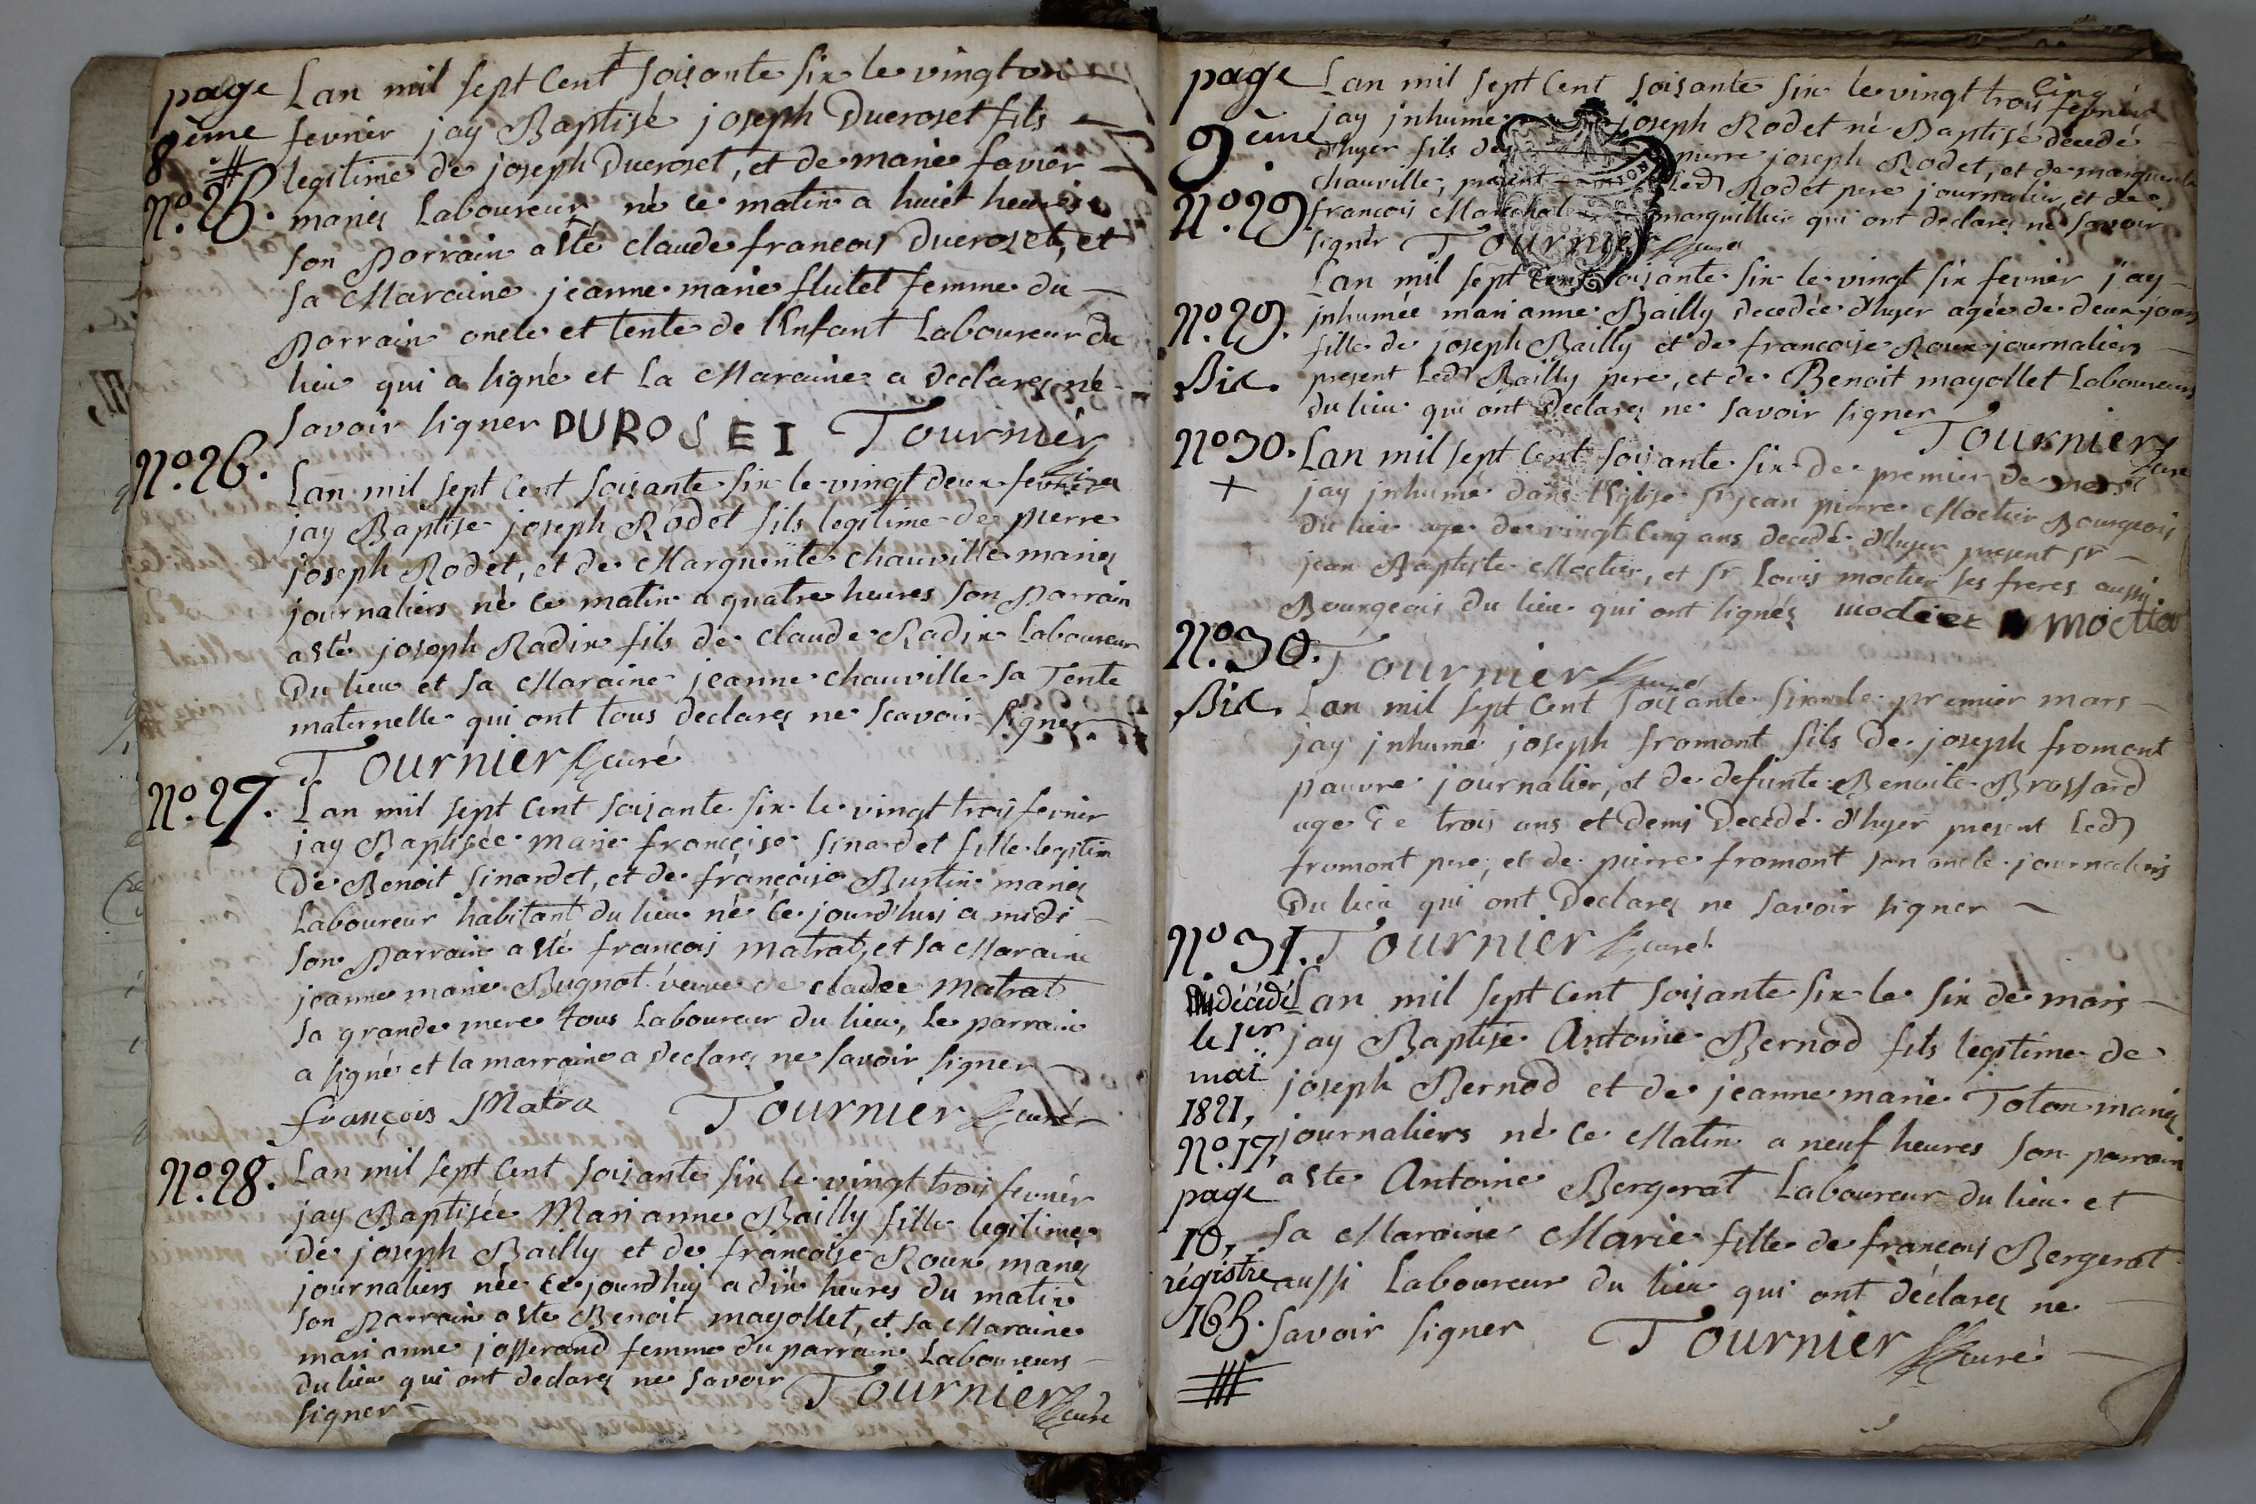 page
8ème
#
N.º 25.
Lan mil sept Cent soisante six le vingt un
fevrier jay Baptisé joseph Ducroset fils
legitime de joseph Ducroset, et de marie favier
mariez Laboureur né ce matin a huict heures
son Parrain a sté claude francois Ducrozet, et
sa Maraine jeanne marie flutet femme du
Parrain oncle et tente de l'Enfant Laboureur du
lieu qui a signé et La Maraine a declarez ne
savoir signer DUROSEI Tournier
N.º 26.
Lan mil sept Cent soisante six le vingt deux fevrier
jay Baptise joseph Rodet fils legitime de pierre
joseph Rodet, et de Marguerite chauville mariez
journaliers né ce matin a quatre heures son Parrain
a sté joseph Radix fils de claude Radix Laboureur
Du lieu et sa Maraine jeanne chauville sa Tente
maternelle qui ont tous declarez ne scavoir signer
Tournier curé
N.º 27.
Lan mil sept Cent soisante six le vingt trois fevrier
jay Baptisée marie françoise sinardet fille legitim
De Benoit sinardet, et de françoise Burtin mariez
Laboureur habitant du lieu né ce jourd'hui a midi
son Parrain a sté francois matrat, et sa Maraine
jeanne marie Bugnot veuve de claudee matrat
sa grande mere tous Laboureur du lieu, Le parrain
a signé et la marraine a declarez ne savoir signer
françois Matra Tournier curé
N.º 28.
Lan mil sept Cent soisante six le vingt trois fevrier
jay Baptisée Mari anne Bailly fille legitime
de joseph Bailly et de françoise Roux mariez
journaliers née ce jourdhuj a dix heures du matin
son Parrain a sté Benoit mayollet, et sa Maraine
mari anne josserand femme du parrain Laboureurs
du lieu qui ont declarez ne savoir
signer Tournier curé
page
9ème
N.º 29
Lan mil sept Cent soisante six le vingt trois Cinq fevrier
jay jnhumé joseph Rodet né Baptisé decedé
d'hyer fils de pierre joseph Rodet, et de marguerite
chauville, present Led Rodet pere journalier, et de
francois Marechal marguillier qui ont declarez ne savoir
signer Tournier curé
N.º 29.
Bis.
Lan mil sept Cent soisante six le vingt six fevrier j'ay
jnhumée mari anne Bailly decedée d'hyer agée de deux jours
fille de joseph Bailly et de francoise Roux journaliers
present Led Bailly pere, et de Benoit mayollet Laboureurs
du lieu qui ont declarez ne savoir signer
Tournier curé
N.º 30.
+
Lan mil sept Cent soisante six de premier de mars
jay jnhumé dans l'Eglise sr jean pierre Moctier Bourgeois
du lieu age de vingt Cinq ans decedé d'hyer present sr
jean Baptiste Moctier, et sr Louis moctier ses freres aussi
Bourgeois du lieu qui ont signéz moctier Moctier
Tournier curé
N.º 30.
Bis.
Lan mil sept Cent soisante six le premier mars
jay jnhumé joseph fromont fils de joseph fromont
pauvre journalier, et de defunte Benoite Brossard
age de trois ans et demj Decedé d'hyer present Led
fromont pere, et de pierre fromont son oncle journaliers
Du lieu qui ont Declarez ne savoir signer
Tournier curé
N.º 31.
décédé
le 1er
mai
1821,
N.º 17,
page
10,
régistre
165.
Lan mil sept Cent soisante six le six de mars
jay Baptisé Antoine Bernod fils legitime de
joseph Bernod et de jeanne marie Toton mariez
journaliers né ce Matin a neuf heures son parrain
a sté Antoine Bergerat Laboureur du lieu et
sa Maraine Marie fille de francois Bergerat
aussi Laboureur du lieu qui ont déclarez ne
savoir signer Tournier curé